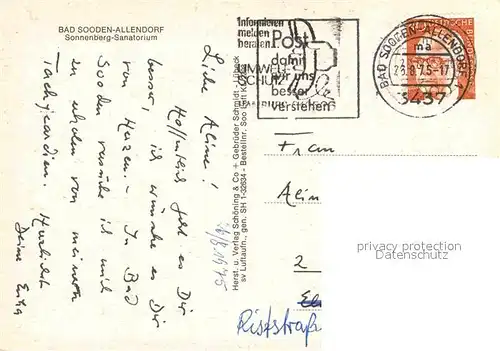 BAD SOODEN-ALLENDORF
Sonnenberg-Sanatorium
Informieren
melden
beraten
Post
damit
wir uns
besser
verstehen
UMWELT
SCHUTZ
BAD SOODEN-ALLENDORF
ma
26.8.75-17
3437
DEUTSCHE
Liebe Aline!
Hoffentlich geht es Dir
besser, ich wünsche es Dir
von Herzen. In Bad
Sooden versuche ich mich
zu erholen von meinen
Tachycardien. Herzlichst
Deine Erika
26/8.1975
Herst. u. Verlag Schöning & Co + Gebrüder Schmidt - Lübeck
sv Luftaufn., gen. SH 1-32634 - Bestellnr. Soo
Frau
Alin
2
Ristraß
privacy protection
DELCAMPE WATERMARK